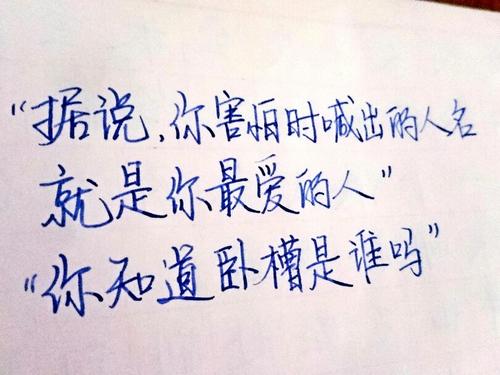 “据说，你害怕时喊出的人名
就是你最爱的人”
“你知道卧槽是谁吗”